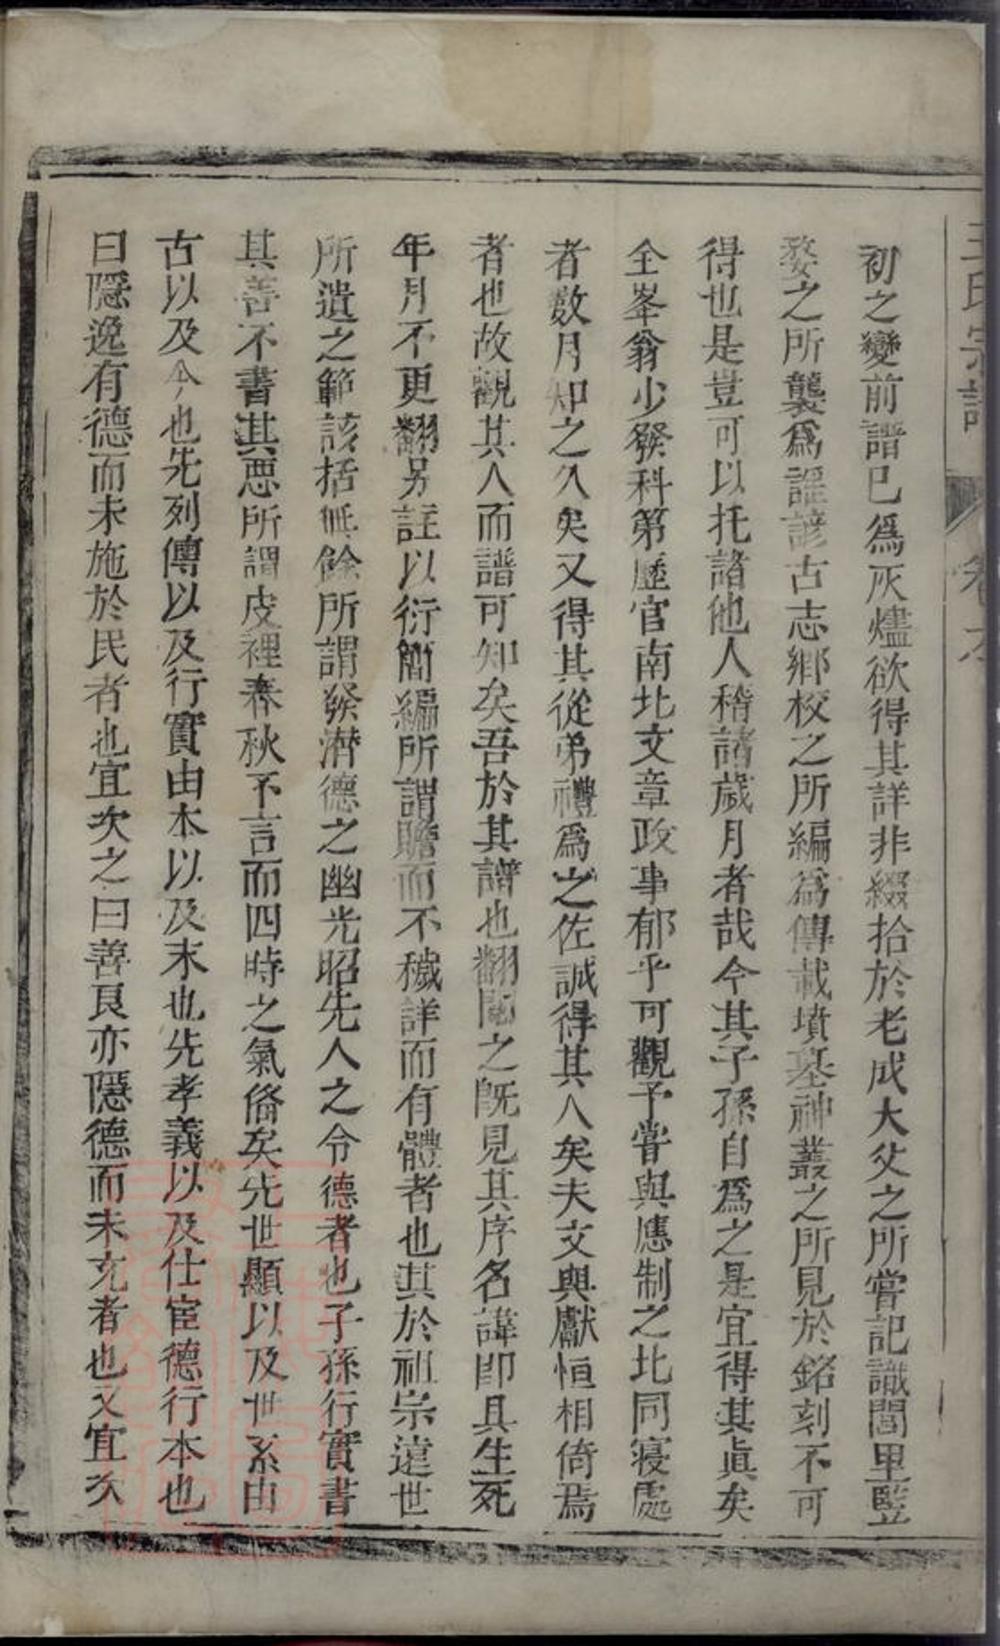 王氏宗譜
卷之
初之變前譜已為灰燼欲得其詳非綴拾於老成大父之所嘗記識閭里監
婺之所襲為謡諺古志鄉校之所編為傳載墳墓神叢之所見於銘刻不可
得也是豈可以托諸他人稽諸歲月者哉今其子孫自為之是宜得其真矣
全峯翁少發科第歷官南北文章政事郁乎可觀予嘗與應制之北同寢處
者数月知之久矣又得其從弟禮為之佐誠得其人矣夫文與獻恒相倚焉
者也故觀其人而譜可知矣吾於其譜也翻閱之既見其序名諱即具生死
年月不更翻另註以衍簡編所謂贍而不穢詳而有體者也其於祖宗遠世
所遺之範該括無餘所謂發濳德之幽光昭先人之令德者也子孫行實書
其善不書其惡所謂皮裡春秋不言而四時之氣俻矣先世顯以及世系由
古以及今也先列傳以及行實由本以及末也先孝義以及仕宦德行本也
曰隱逸有德而未施於民者也宜次之曰善良亦隱德而未充者也又宜次